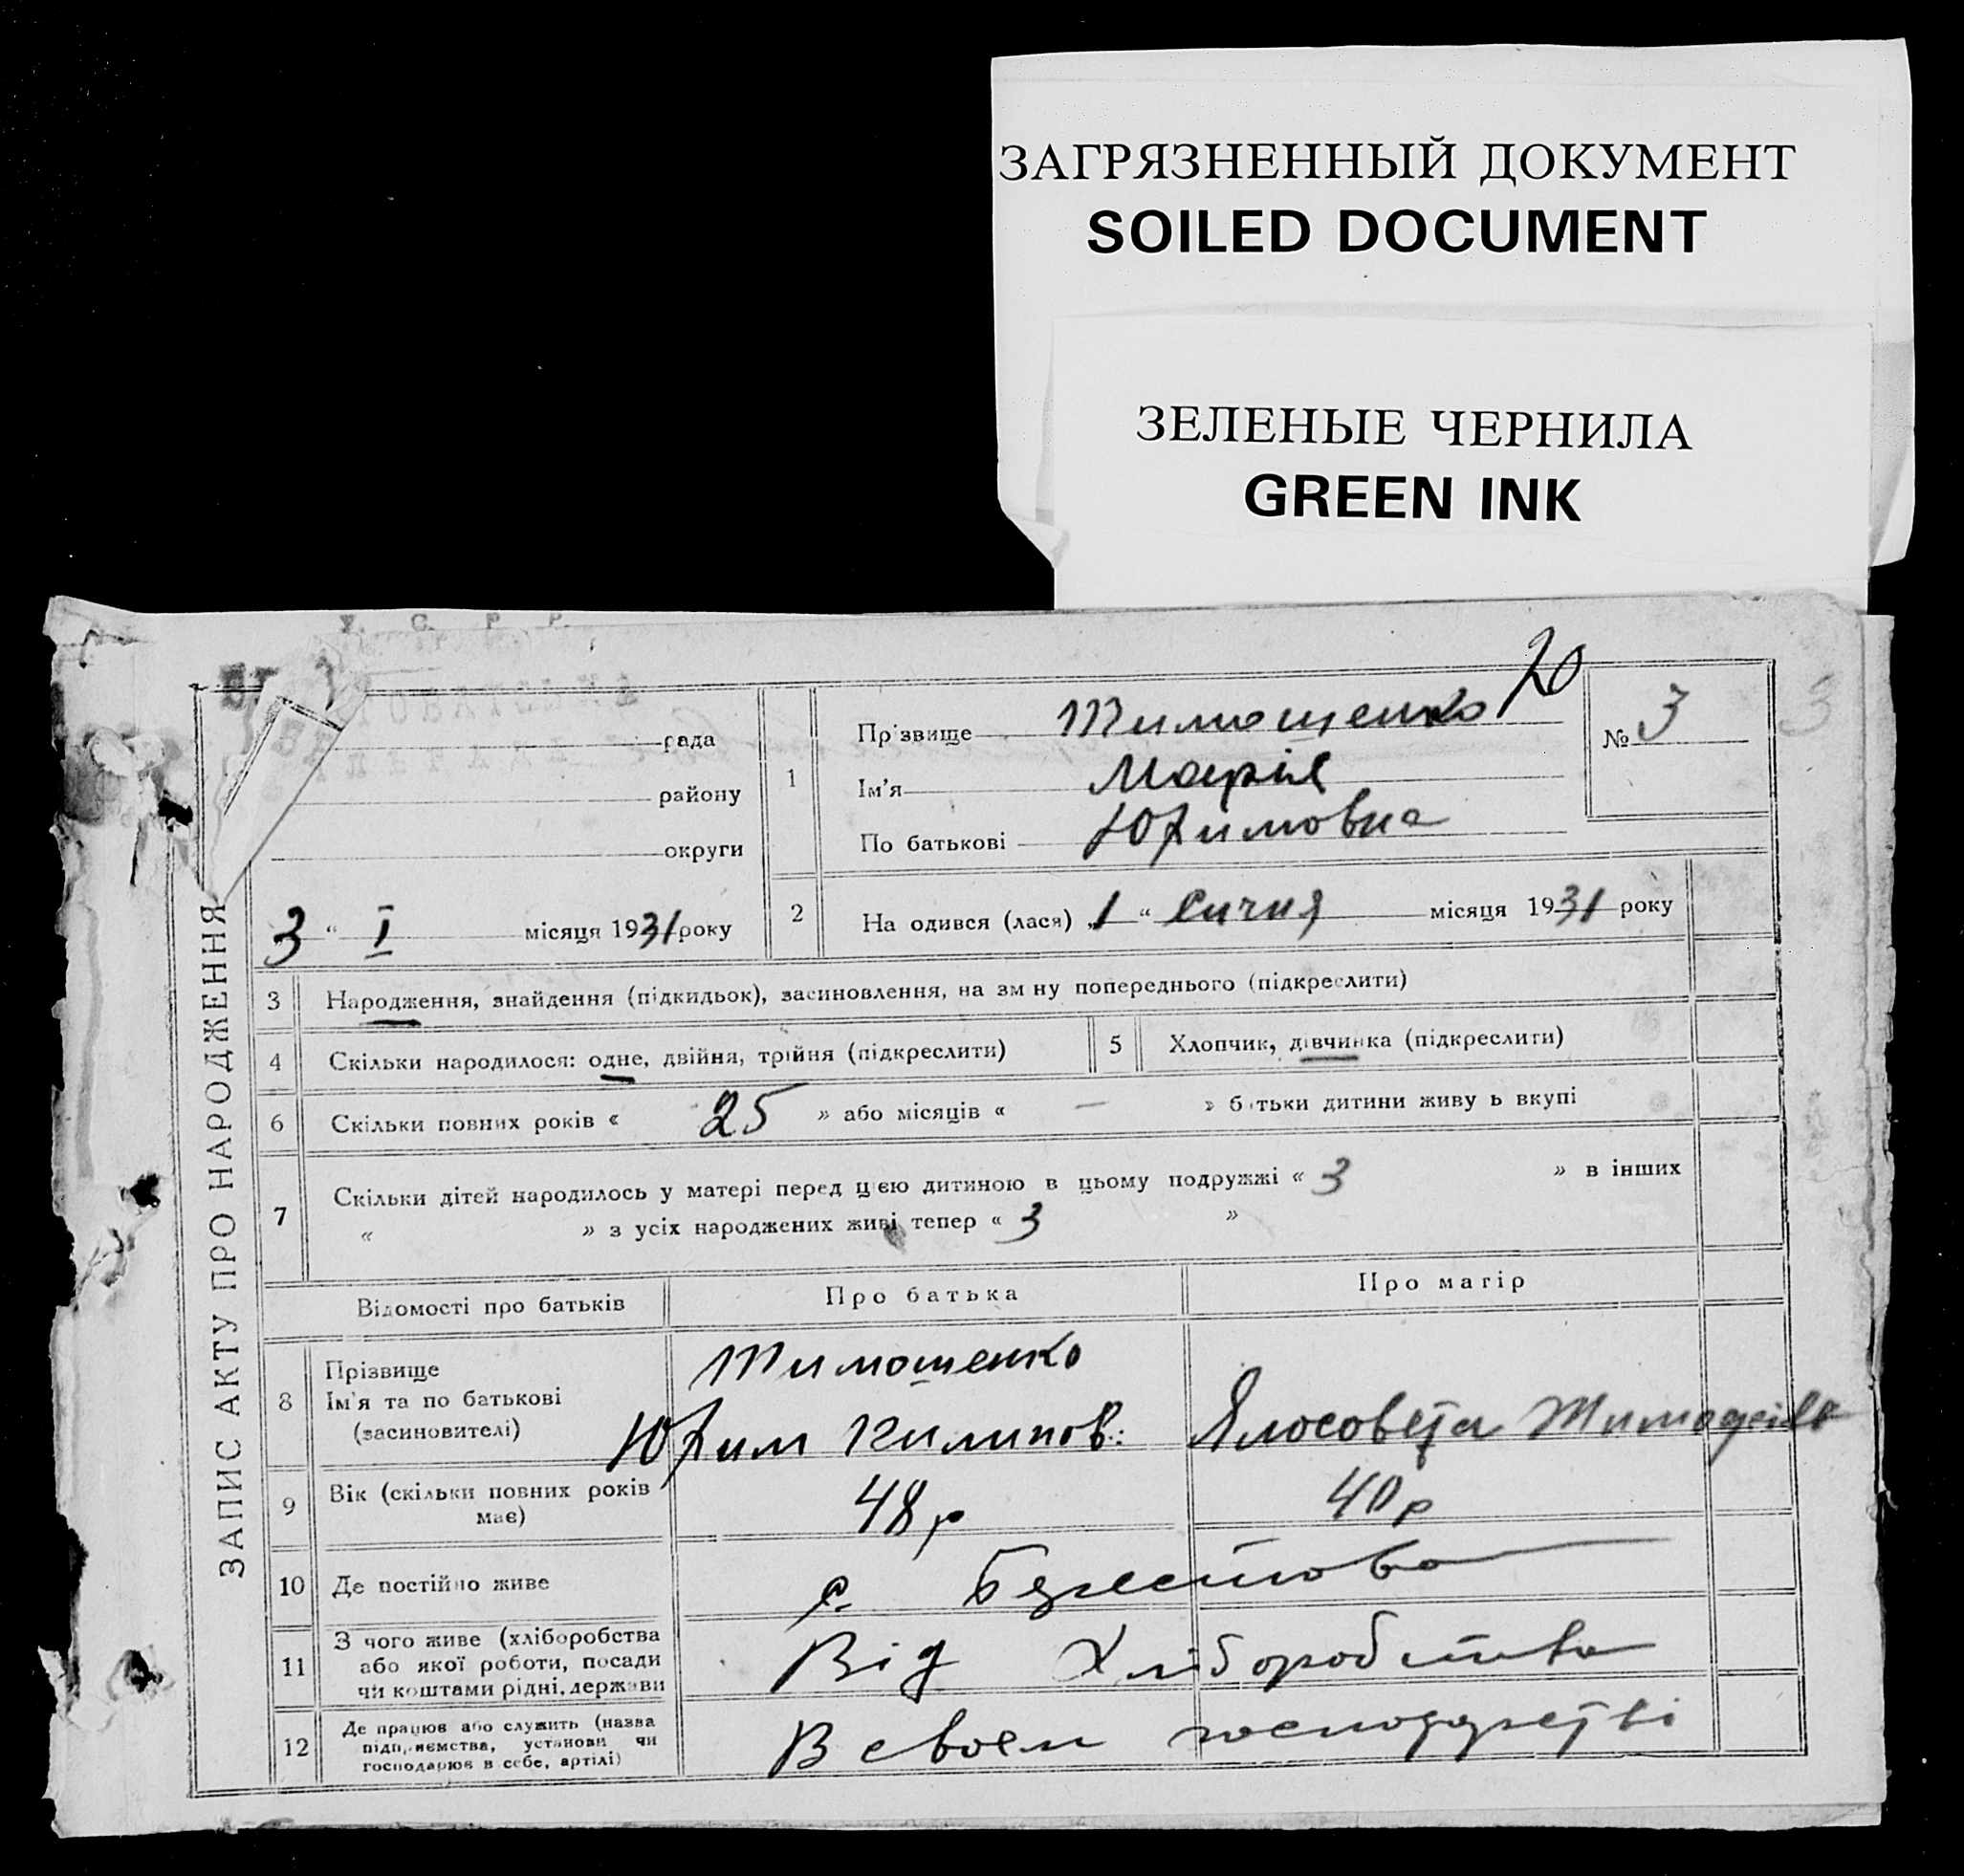 ЗАГРЯЗНЕННЫЙ ДОКУМЕНТ
SOILED DOCUMENT
ЗЕЛЕНЫЕ ЧЕРНИЛА
GREEN INK
У. С. Р. Р.
20
ЗАПИС АКТУ ПРО НАРОДЖЕННЯ
рада
району
округи
3 " I місяця 1931 року
1 Прізвище Тимошенко
Ім'я Марія
По батькові Юхимовна
№ 3
3
2 На одився (лася) „1 " Січня місяця 1931 року
3 Народження, знайдення (підкидьок), засиновлення, на зм ну попереднього (підкреслити)
4 Скільки народилося: одне, двійня, трійня (підкреслити)
5 Хлопчик, дівчинка (підкреслити)
6 Скільки повних років « 25 » або місяців « — » б тьки дитини живу ь вкупі
7 Скільки дітей народилось у матері перед цією дитиною в цьому подружжі « 3 » в інших
« » з усіх народжених живі тепер « 3 »
Відомості про батьків Про батька Про матір
8 Прізвище
Ім'я та по батькові
(засиновителі)
Тимошенко
Юхим Килипов:
9 Вік (скільки повних років
має)
48 р 40 р
10 Де постійно живе
с.
11 З чого живе (хліборобства
або якої роботи, посади
чи коштами рідні, держави
Від Хліборобства
12 Де працює або служить (назва
підприємства, установи чи
господарює в себе, артілі)
В своем